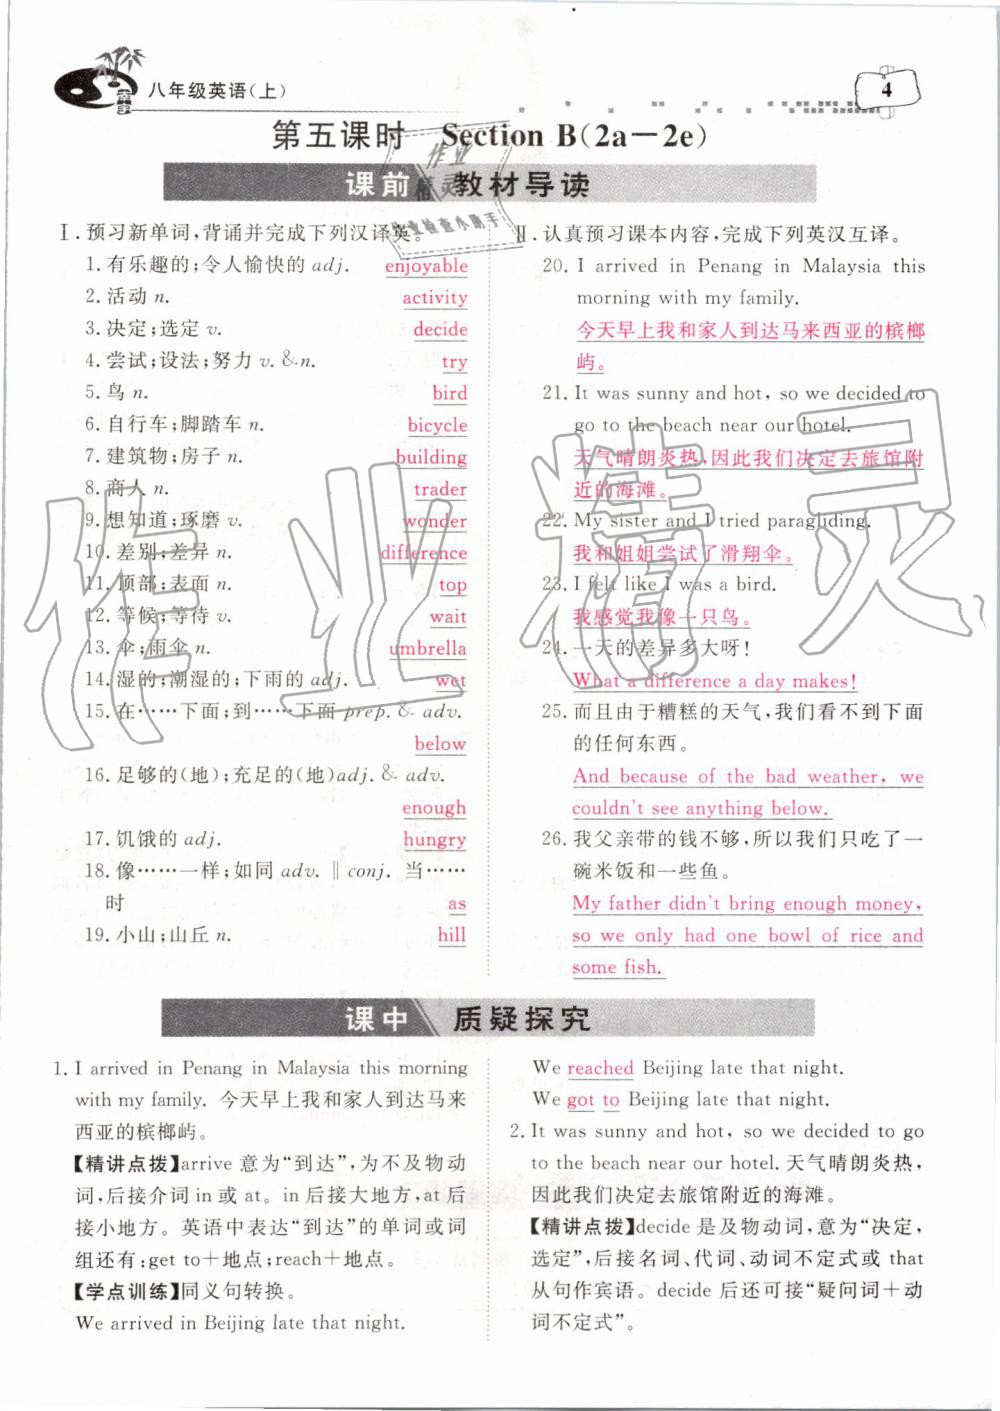 八年级英语(上)
4
第五课时 Section B(2a-2e)
课前 教材导读
Ⅰ.预习新单词,背诵并完成下列汉译英。
1.有乐趣的;令人愉快的 adj. enjoyable
2.活动 n. activity
3.决定;选定 v. decide
4.尝试;设法;努力 v. & n. try
5.鸟 n. bird
6.自行车;脚踏车 n. bicycle
7.建筑物;房子 n. building
8.商人 n. trader
9.想知道;琢磨 v. wonder
10.差别;差异 n. difference
11.顶部;表面 n. top
12.等候;等待 v. wait
13.伞;雨伞 n. umbrella
14.湿的;潮湿的;下雨的 adj. wet
15.在……下面;到……下面 prep. & adv.
below
16.足够的(地);充足的(地)adj. & adv.
enough
17.饥饿的 adj. hungry
18.像……一样;如同 adv. ‖ conj. 当……
时 as
19.小山;山丘 n. hill
Ⅱ.认真预习课本内容,完成下列英汉互译。
20. I arrived in Penang in Malaysia this
morning with my family.
今天早上我和家人到达马来西亚的槟榔
屿。
21. It was sunny and hot, so we decided to
go to the beach near our hotel.
天气晴朗炎热,因此我们决定去旅馆附
近的海滩。
22. My sister and I tried paragliding.
我和姐姐尝试了滑翔伞。
23. I felt like I was a bird.
我感觉我像一只鸟。
24.一天的差异多大呀!
What a difference a day makes!
25.而且由于糟糕的天气,我们看不到下面
的任何东西。
And because of the bad weather, we
couldn't see anything below.
26.我父亲带的钱不够,所以我们只吃了一
碗米饭和一些鱼。
My father didn't bring enough money,
so we only had one bowl of rice and
some fish.
课中 质疑探究
1. I arrived in Penang in Malaysia this morning
with my family. 今天早上我和家人到达马来
西亚的槟榔屿。
【精讲点拨】arrive 意为“到达”,为不及物动
词,后接介词 in 或 at。in 后接大地方,at 后
接小地方。英语中表达“到达”的单词或词
组还有:get to+地点;reach+地点。
【学点训练】同义句转换。
We arrived in Beijing late that night.
We reached Beijing late that night.
We got to Beijing late that night.
2. It was sunny and hot, so we decided to go
to the beach near our hotel.天气晴朗炎热,
因此我们决定去旅馆附近的海滩。
【精讲点拨】decide 是及物动词,意为“决定,
选定”,后接名词、代词、动词不定式或 that
从句作宾语。decide 后还可接“疑问词+动
词不定式”。
作业精灵
作业
精灵
作业检查小助手